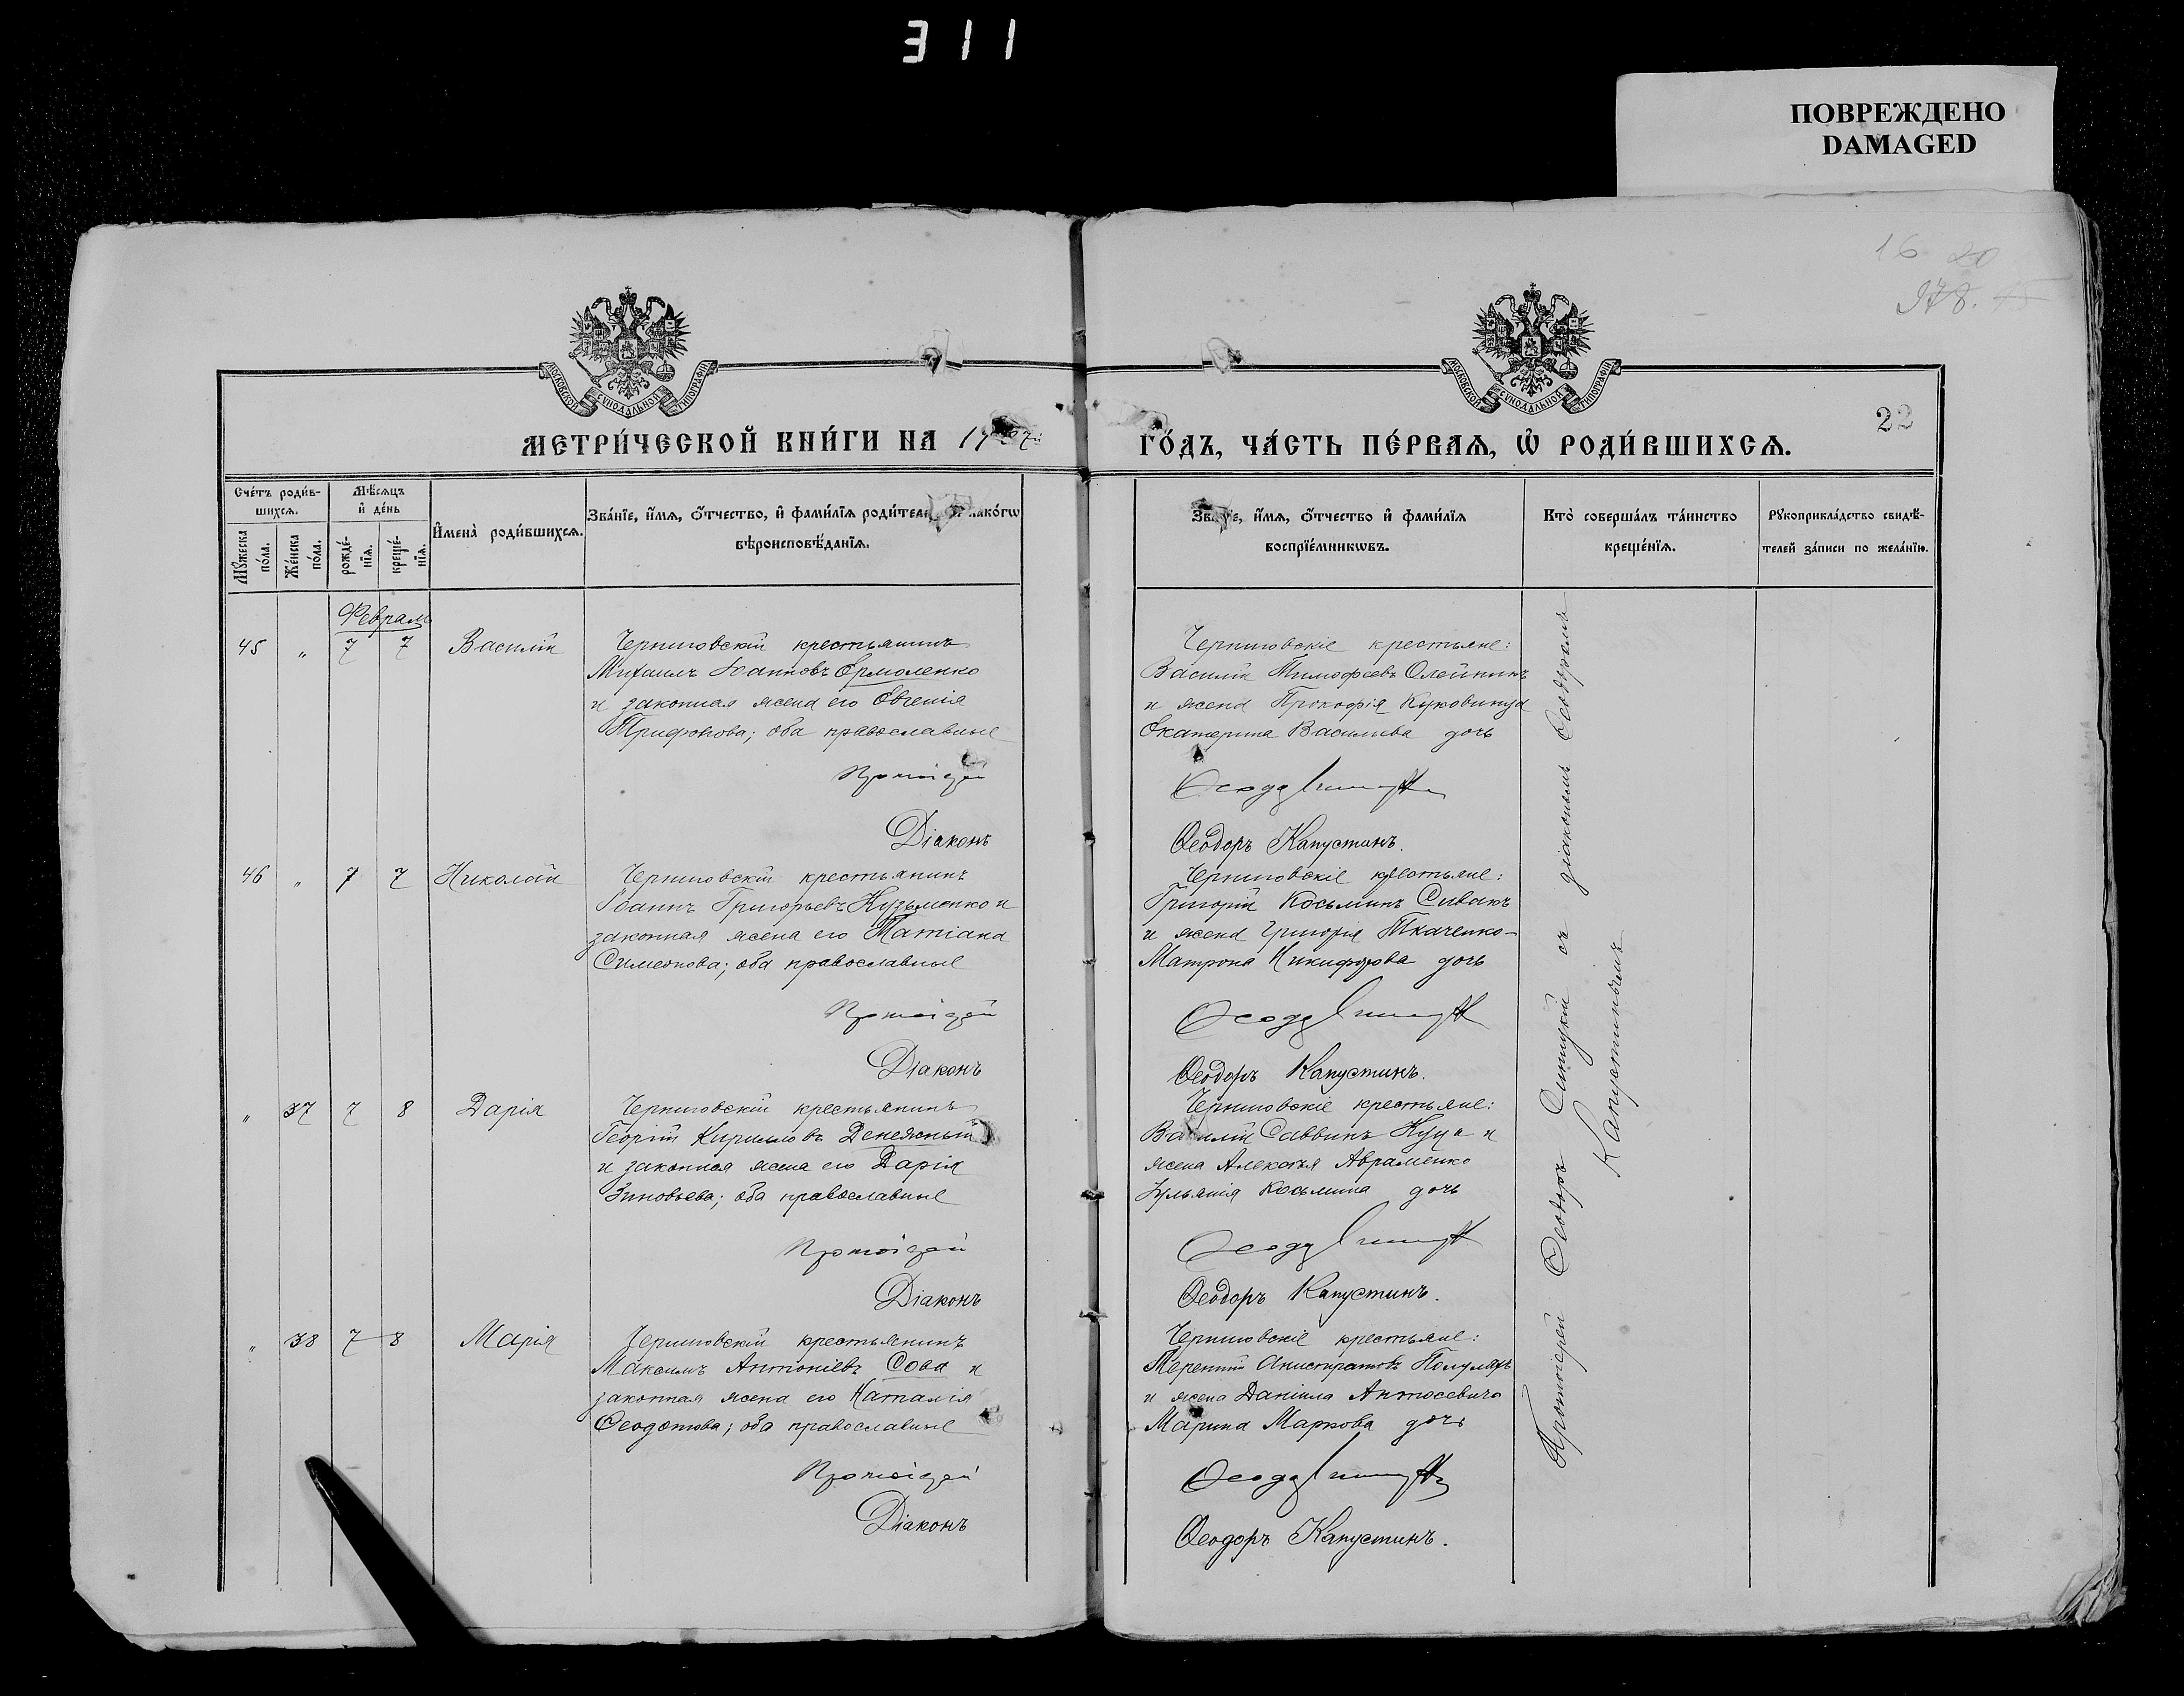 311
ПОВРЕЖДЕНО
DAMAGED
16 20
978. 15
МОСКОВСКОЙ СѴНОДАЛЬНОЙ ТИПОГРАФІИ
МОСКОВСКОЙ СѴНОДАЛЬНОЙ ТИПОГРАФІИ
22
МЕТРИ́ЧЕСКОЙ КНИ́ГИ НА
ГО́ДЪ, ЧА́СТЬ ПЕ́РВАѦ, Ѽ РОДИ́ВШИХСѦ.
Сче́тъ роди́в-
шихсѧ.
Мꙋ́жеска по́ла.
Же́нска по́ла.
Мѣ́сѧцъ
и҆ де́нь
рожде́-
нїѧ.
креще́-
нїѧ.
И҆мена̀ роди́вшихсѧ.
Зва́нїе, и҆́мѧ, ѻ҆́тчество, и҆ фами́лїѧ роди́теле
вѣроисповѣ́данїѧ.
и҆́мѧ, ѻ҆́тчество и҆ фами́лїѧ
воспрїе́мникѡвъ.
Кто̀ соверша́лъ та́инство
креще́нїѧ.
Рꙋкоприкла́дство свидѣ́-
телей за́писи по жела́нїю.
Февраль
45 „ 7 7 Василій
Черниговскій крестьянинъ
Михаилъ Іоанновъ Ермоленко
и законная жена его Евгенія
Трифонова; оба православные
Протоіерей
Діаконъ
Черниговскіе крестьяне:
Василій Тимофеевъ Олейникъ
и жена Прокофія Куковинца
Екатерина Васильева дочь
Ѳеодоръ
Ѳеодоръ Капустинъ.
46 „ 7 7 Николай
Черниговскій крестьянинъ
Іоаннъ Григорьевъ Кузьменко и
законная жена его Татіана
Симеонова; оба православные
Протоіерей
Діаконъ
Черниговскіе крестьяне:
Григорій Косьминъ Сивакъ
и жена Григорія Ткаченко-
Матрона Никифорова дочь
Ѳеодоръ
Ѳеодоръ Капустинъ.
„ 37 7 8 Дарія
Черниговскій крестьянинъ
Георгій Кирилловъ Денежный
и законная жена его Дарія
Зиновьева; оба православные
Протоіерей
Діаконъ
Черниговскіе крестьяне:
Василій Саввинъ Куца и
жена Алексѣя Авраменко
Іульянія Косьмина дочь
Ѳеодоръ
Ѳеодоръ Капустинъ.
„ 38 7 8 Марія
Черниговскій крестьянинъ
Максимъ Антоніевъ Сова и
законная жена его Наталія
Ѳеодотова; оба православные
Протоіерей
Діаконъ
Черниговскіе крестьяне:
Терентій
и жена Даніила Антосевича
Марина Маркова дочь
Ѳеодоръ
Ѳеодоръ Капустинъ.
Протоіерей Ѳеодоръ Синицкій съ діакономъ Ѳеодоромъ
Капустинымъ